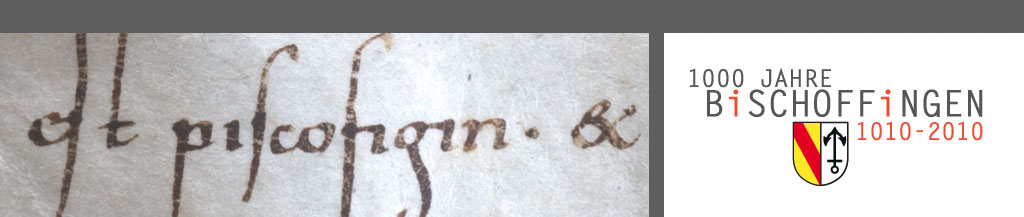 est piscofigin · &
1000 JAHRE
BiSCHOFFiNGEN
1010-2010